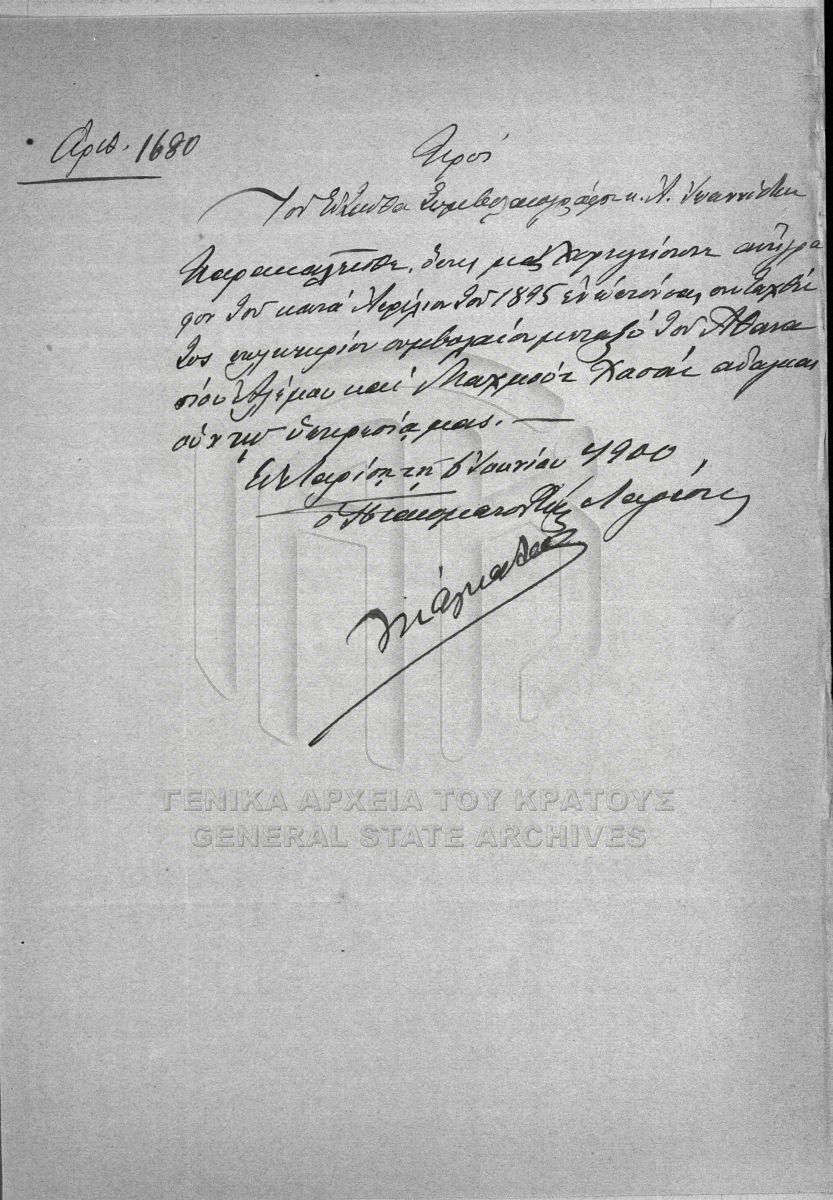 Αριθ. 1680
Προς
Τον ενταύθα Συμβολαιογράφον κ. Α. Ιωαννίδην
Παρακαλείσθε, όπως μας χορηγήσητε αντίγρα
φον του κατά Απρίλιον του 1895 συνταχθέν
τος πωλητηρίου συμβολαίου μεταξύ του Αθανα
σίου και Μαχμούτ Χασάν
υπηρεσία μας. —
Εν Λαρίση τη 6 Ιουνίου 1900
ο Λαρίσης
ΓΕΝΙΚΑ ΑΡΧΕΙΑ ΤΟΥ ΚΡΑΤΟΥΣ
GENERAL STATE ARCHIVES